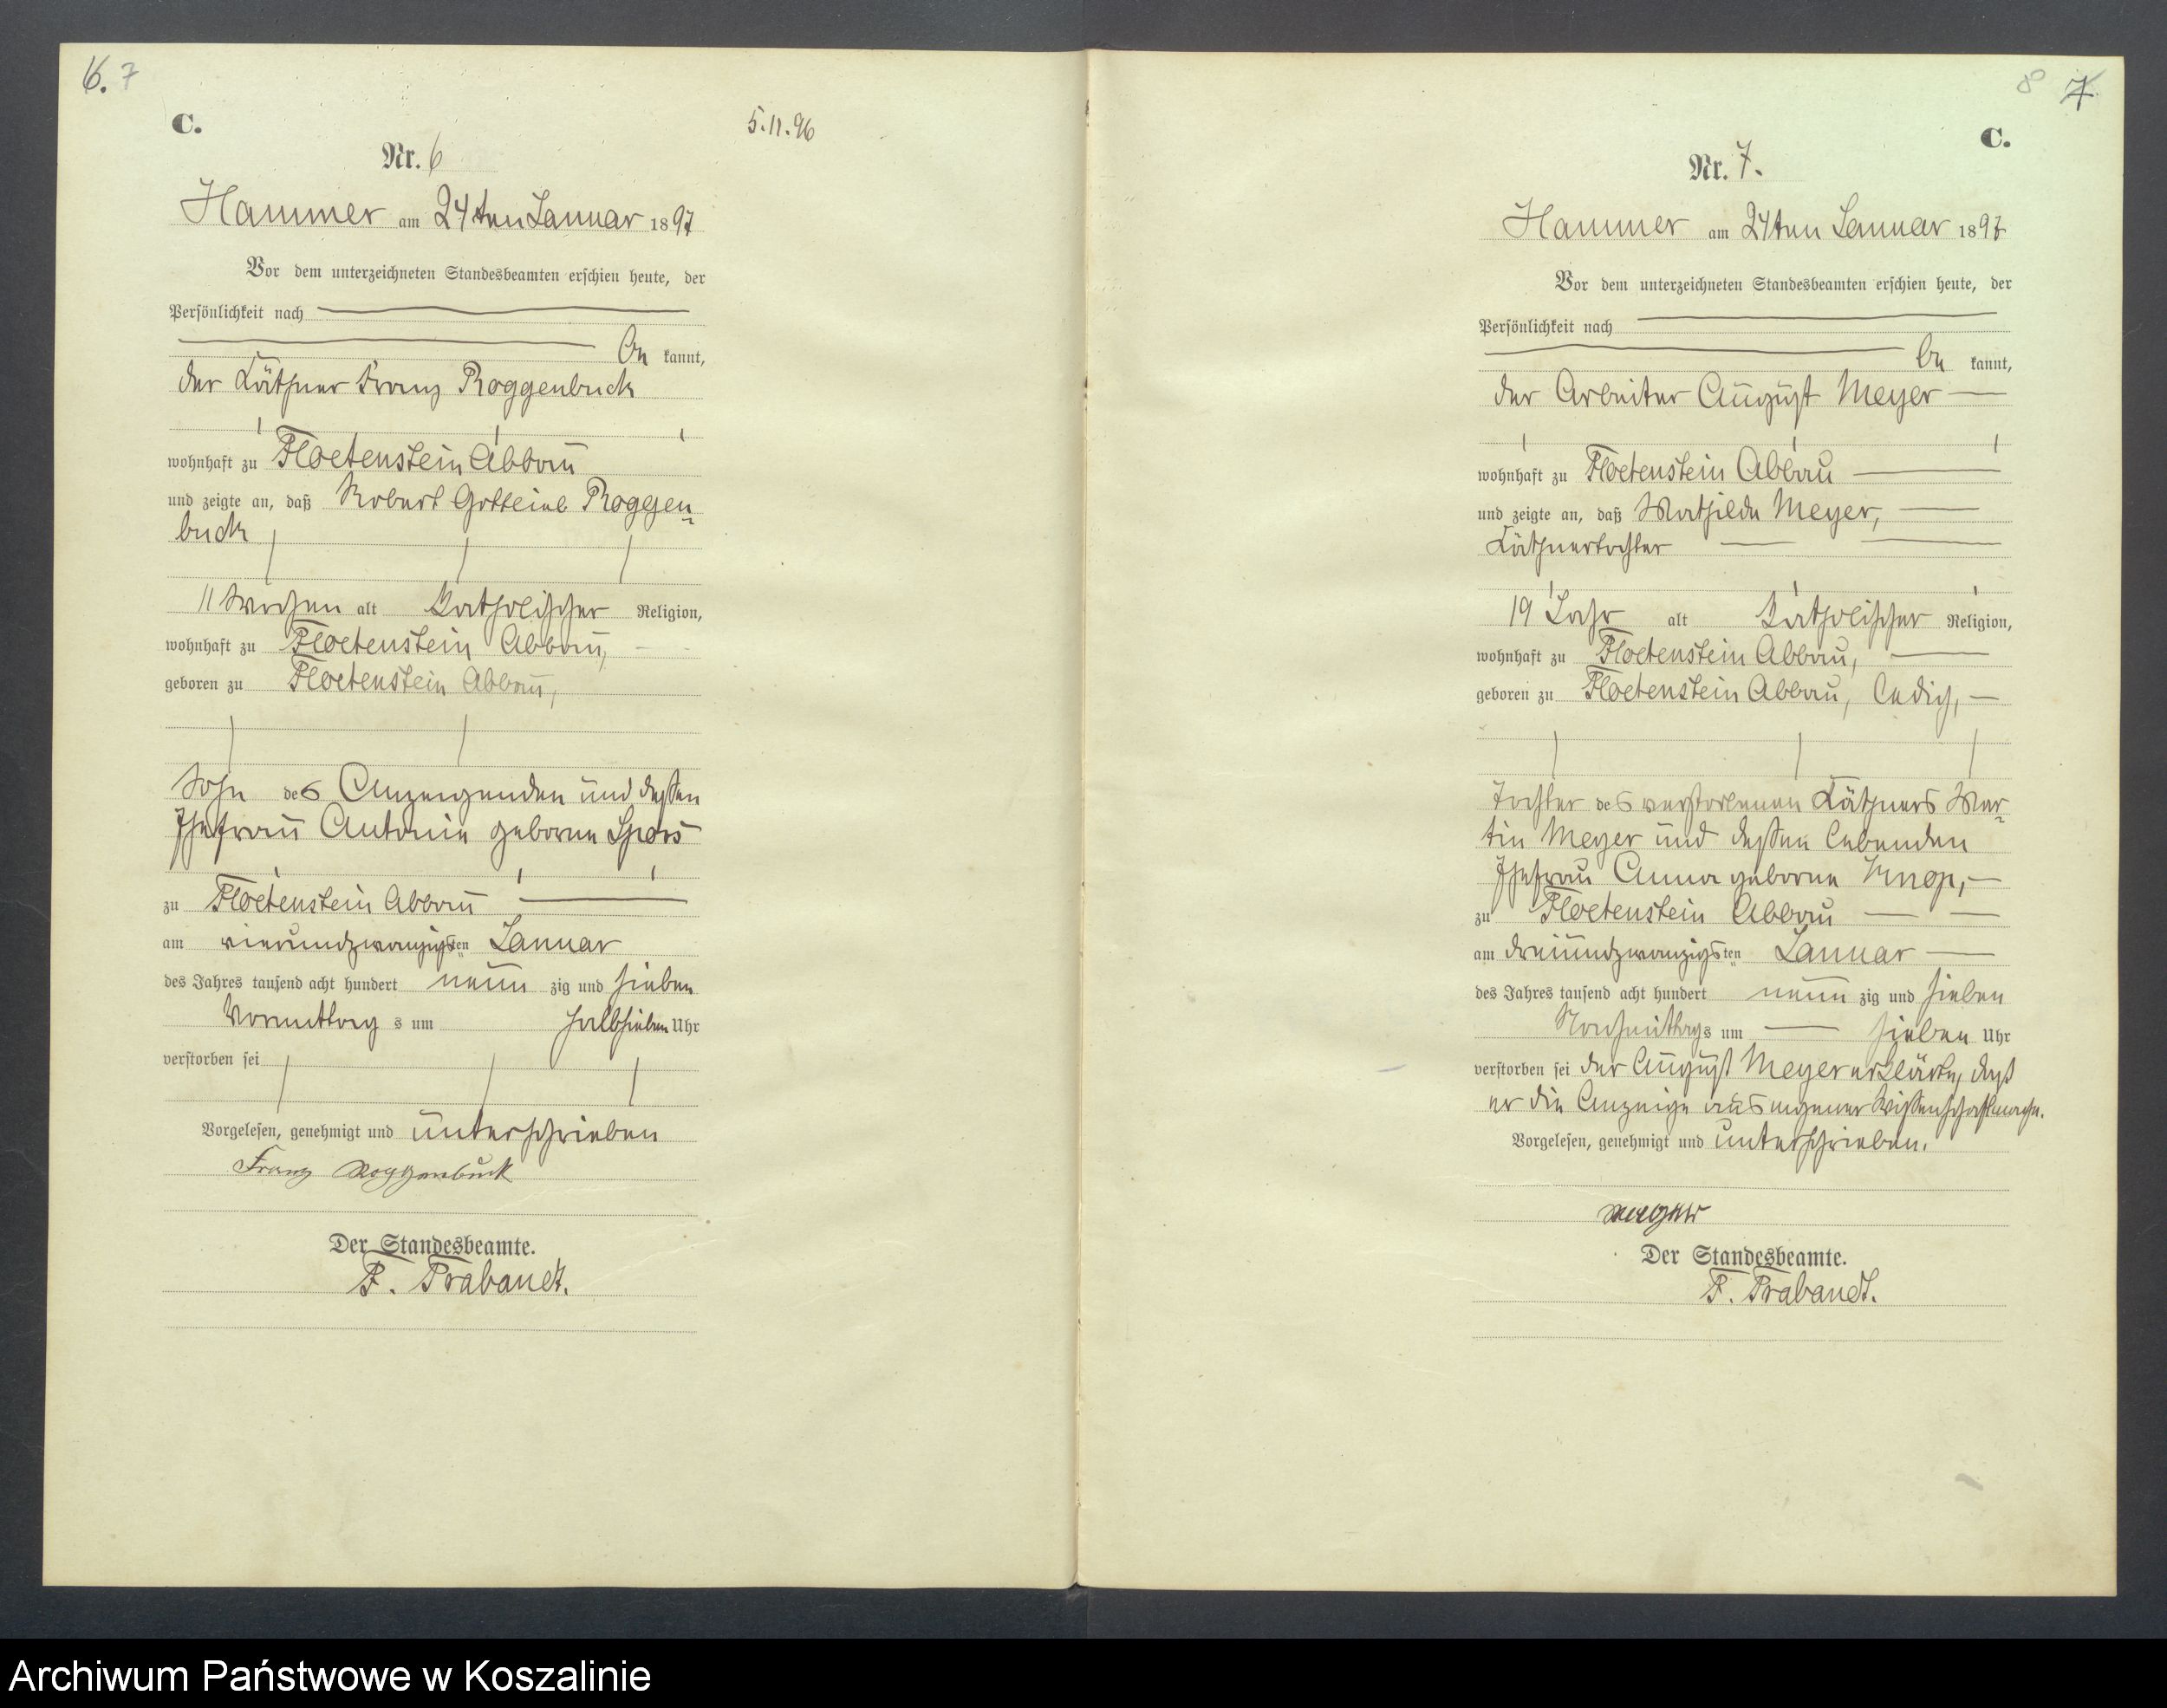 6. 7
C.
5.11.96
Nr. 6
Hammer am 24ten Januar 1897
Vor dem unterzeichneten Standesbeamten erschien heute, der
Persönlichkeit nach
be kannt,
der Käthner Franz Roggenbuck
wohnhaft zu Floetenstein Abbau
und zeigte an, daß Robert Gottlieb Roggen
buck
11 Wochen alt Katholischer Religion,
wohnhaft zu Floetenstein Abbau,
geboren zu Floetenstein Abbau,
Sohn des Anzeigenden und dessen
Ehefrau Antonie geborne Spors
zu Floetenstein Abbau
am vierundzwanzigsten Januar
des Jahres tausend acht hundert neun zig und sieben
Vormittag s um halbsieben Uhr
verstorben sei
Vorgelesen, genehmigt und unterschrieben
Franz Roggenbuck
Der Standesbeamte.
F. Trabandt.
8 7
C.
Nr. 7.
Hammer am 24ten Januar 1897
Vor dem unterzeichneten Standesbeamten erschien heute, der
Persönlichkeit nach
be kannt,
der Arbeiter August Meyer
wohnhaft zu Floetenstein Abbau
und zeigte an, daß Mathilde Meyer,
Käthnertochter
19 Jahr alt Katholischer Religion,
wohnhaft zu Floetenstein Abbau,
geboren zu Floetenstein Abbau, ledig,
Tochter des verstorbenen Käthners Mar
tin Meyer und dessen lebenden
Ehefrau Anna geborne Knop,
zu Floetenstein Abbau
am dreiundzwanzigsten Januar
des Jahres tausend acht hundert neun zig und sieben
Nachmittags um sieben Uhr
verstorben sei der August Meyer erklärte, daß
er die Anzeige aus eigener Wissenschaft mache.
Vorgelesen, genehmigt und unterschrieben.
Meyer
Der Standesbeamte.
F. Trabandt.
Archiwum Państwowe w Koszalinie